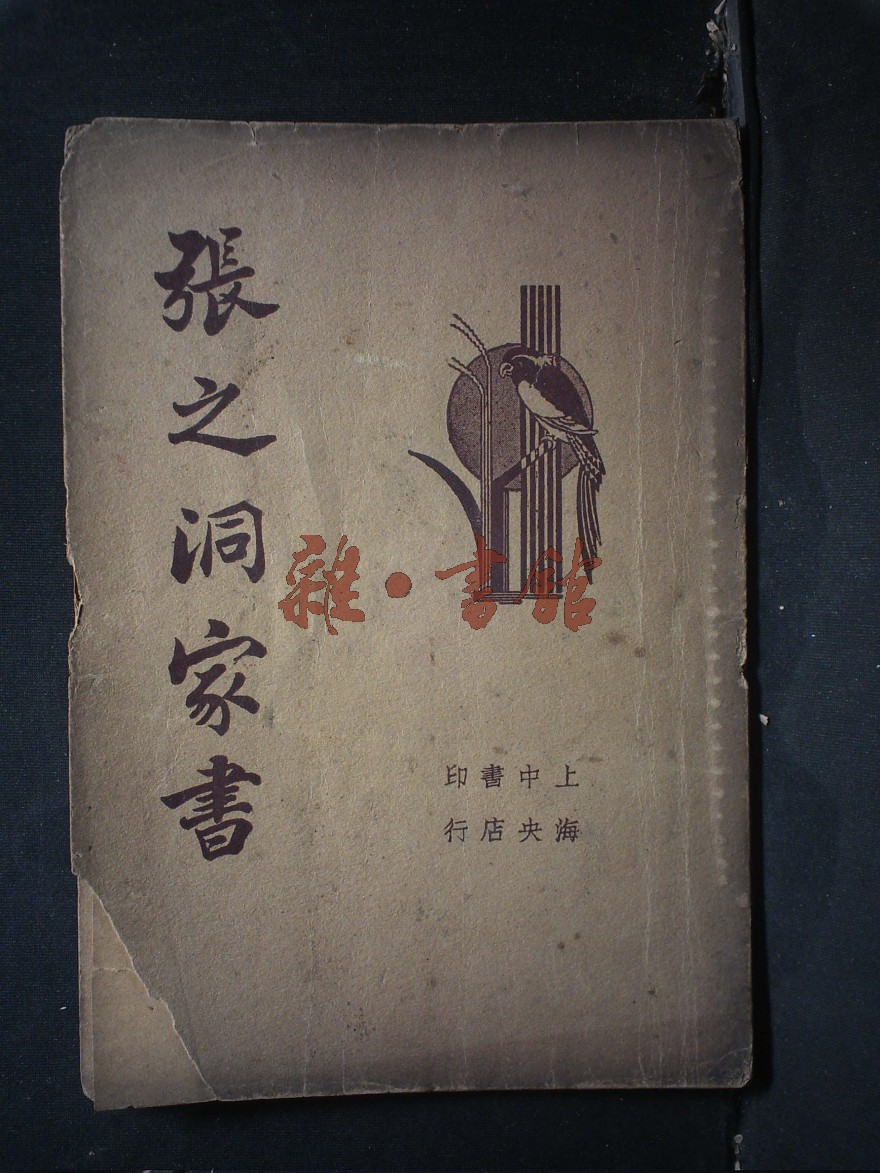 張之洞家書
雜·書館
上海
中央
書店
印行